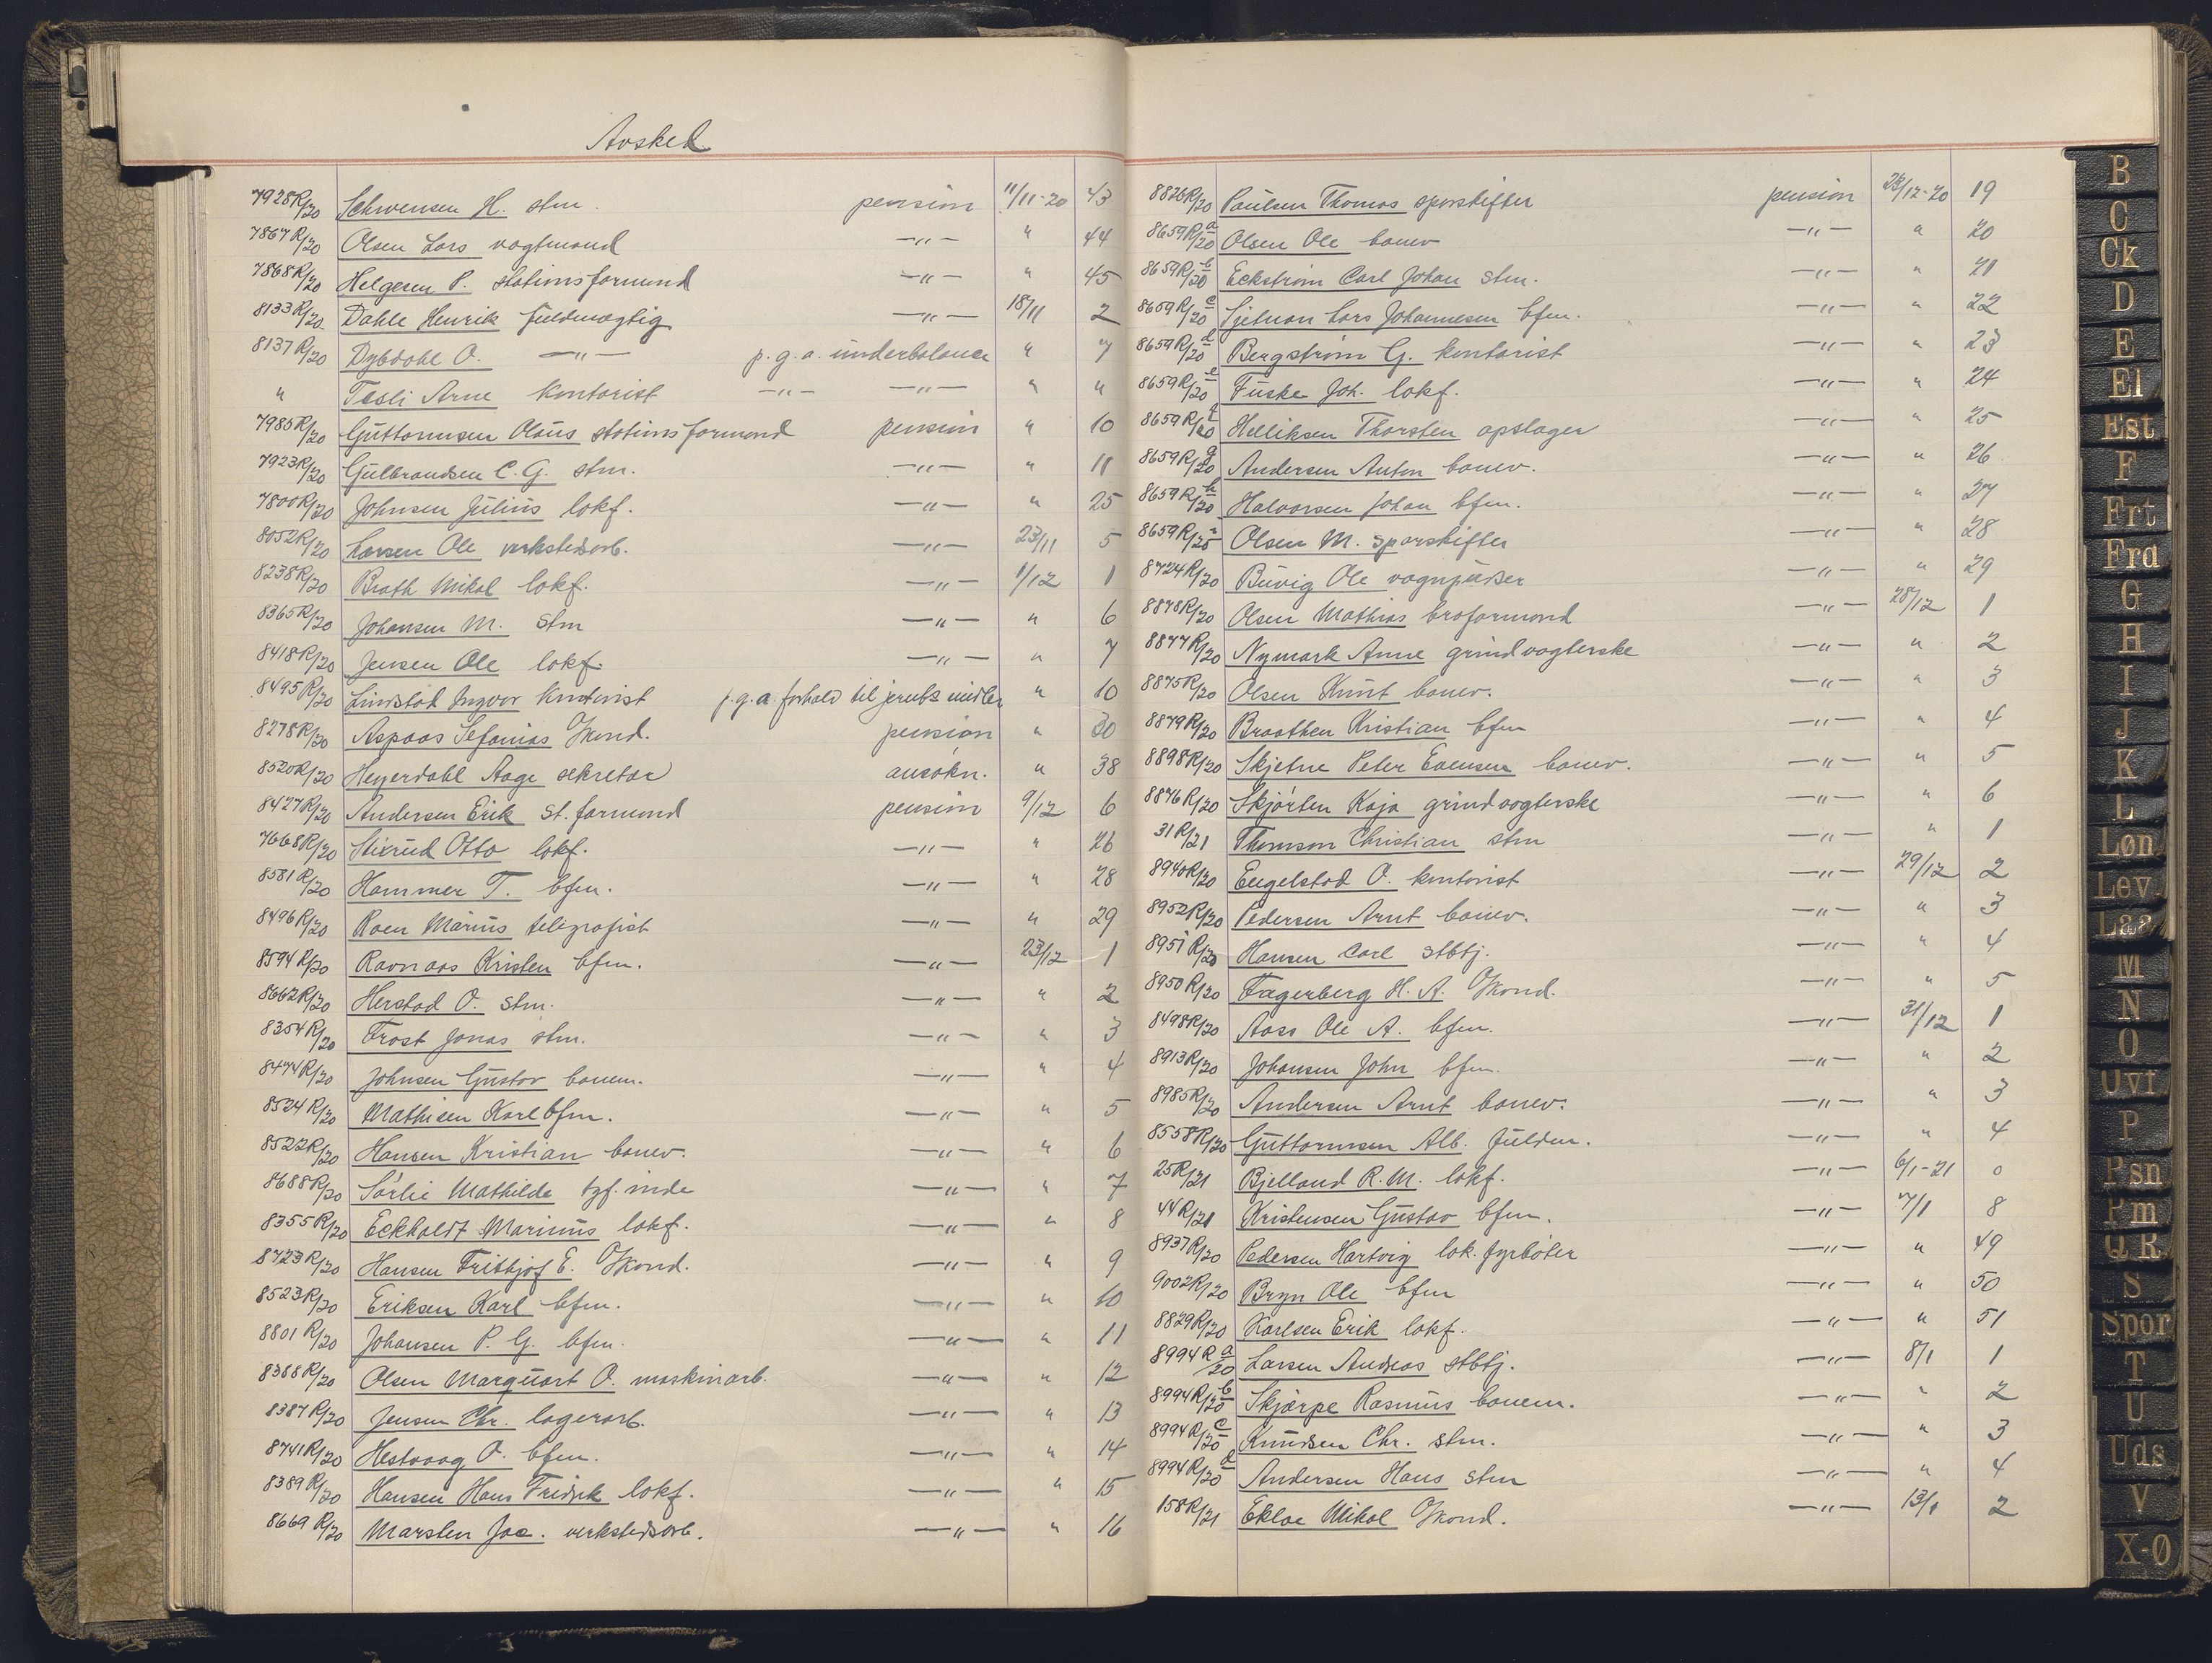 Avsked
7928R/20 Schwensen H. stm. pension 11/11-20 43
7867R/20 Olsen Lars vagtmand —"— " 44
7868R/20 Helgesen P. stationsformand —"— " 45
8133R/20 Dahle Henrik fuldmægtig —"— 18/11 2
8137R/20 Dybdahl O. —"— p.g.a. underbalance " 7
" Tesli Arne kontorist —"— —"— " "
7985R/20 Guttormsen Olaus stationsformand pension " 10
7923R/20 Gulbrandsen C. G. stm. —"— " 11
7800R/20 Johnsen Julius lokf. —"— " 25
8052R/20 Larsen Ole verkstedsarb. —"— 23/11 5
8238R/20 Brath Mikal lokf. —"— 1/12 1
8365R/20 Johansen M. stm —"— " 6
8418R/20 Jensen Ole lokf. —"— " 7
8495R/20 Linstad Ingvar kontorist p.g.a. forhold til jernb's midler " 10
8278R/20 Aspaas Sefanias Okond. pension " 30
8520R/20 Heyerdahl Aage sekretær ansøkn. " 38
8427R/20 Andersen Erik st. formand pension 9/12 6
7668R/20 Stixrud Otto lokf. —"— " 26
8581R/20 Hammer T. bfm. —"— " 28
8496R/20 Roen Marius telegrafist —"— " 29
8594R/20 Ravnaas Kristen bfm. —"— 23/12 1
8662R/20 Herstad O. stm. —"— " 2
8354R/20 Frost Jonas stm. —"— " 3
8474R/20 Johnsen Gustav banem. —"— " 4
8524R/20 Mathisen Karl bfm. —"— " 5
8522R/20 Hansen Kristian banev. —"— " 6
8688R/20 Sørlie Mathilde tgf.inde —"— " 7
8355R/20 Eckholdt Marinus lokf. —"— " 8
8723R/20 Hansen Fritjof E. Okond. —"— " 9
8523R/20 Eriksen Karl bfm. —"— " 10
8801R/20 Johansen P. G. bfm. —"— " 11
8388R/20 Olsen Marquart O. maskinarb. —"— " 12
8387R/20 Jensen Chr. lagerarb. —"— " 13
8741R/20 Hestvaag O. bfm. —"— " 14
8389R/20 Hansen Hans Fredrik lokf. —"— " 15
8669R/20 Marsten Jac. verkstedsarb. —"— " 16
8826R/20 Paulsen Thomas sporskifter pension 23/12-20 19
8659R a/20 Olsen Ole banev —"— " 20
8659R b/20 Eckstrøm Carl Johan stm. —"— " 21
8659R c/20 Sjetnan Lars Johannesen bfm. —"— " 22
8659R d/20 Bergstrøm G. kontorist —"— " 23
8659R e/20 Fuske Joh. lokf. —"— " 24
8659R f/20 Helliksen Thorsten opslager —"— " 25
8659R g/20 Andersen Anton banev. —"— " 26
8659R h/20 Halvorsen Johan bfm. —"— " 27
8659R i/20 Olsen M. sporskifter —"— " 28
8724R/20 Buvig Ole vognpusser —"— " 29
8878R/20 Olsen Mathias broformand —"— 28/12 1
8877R/20 Nymark Anne grindvogterske —"— " 2
8875R/20 Olsen Knut banev. —"— " 3
8879R/20 Braathen Kristian bfm —"— " 4
8898R/20 Skjetne Peter Evensen banev. —"— " 5
8876R/20 Skjørten Kaja grindvogterske —"— " 6
31R/21 Thomson Christian stm —"— " 1
8940R/20 Engelstad O. kontorist —"— 29/12 2
8952R/20 Pedersen Arnt banev. —"— " 3
8951R/20 Hansen Carl stbtj. —"— " 4
8950R/20 Fagerberg H. A. Okond. —"— " 5
8498R/20 Aass Ole A. bfm. —"— 31/12 1
8913R/20 Johansen John bfm. —"— " 2
8985R/20 Andersen Arnt banev. —"— " 3
8558R/20 Guttormsen Alb. fuldm. —"— " 4
25R/21 Bjelland R. M. lokf. —"— 6/1-21 0
44R/21 Kristensen Gustav bfm. —"— 7/1 8
8937R/20 Pedersen Hartvig lok. fyrbøter —"— " 49
9002R/20 Bryn Ole bfm —"— " 50
8829R/20 Karlsen Erik lokf. —"— " 51
8994R a/20 Larsen Andreas stbtj. —"— 8/1 1
8994R b/20 Skjærpe Rasmus banem. —"— " 2
8994R c/20 Knudsen Chr. stm. —"— " 3
8994R d/20 Andersen Hans stm —"— " 4
158R/21 Ekloe Mikal Okond. —"— 13/1 2
B
C
Ck
D
E
El
Est
F
Frt
Frd
G
H
I
J
K
L
Løn
Lev.
Laa
M
N
O
Ovf
P
Psn
Pm
Q R
S
Spor
T
U
Uds
V
X-Ø